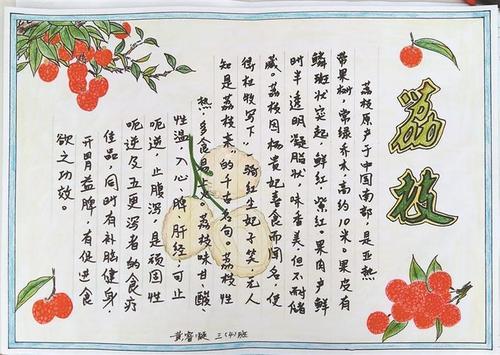 荔枝
荔枝原产于中国南部，是亚热
带果树，常绿乔木，高约10米。果皮有
鳞斑状突起，鲜红，紫红。果肉产鲜
时半透明凝脂状，味香美但不耐储
藏。荔枝因杨贵妃喜食而闻名，使
得杜牧写下“一骑红尘妃子笑，无人
知是荔枝来”的千古名句。荔枝性
热，多食易上火。荔枝味甘、酸、
性温，入心、脾、肝经；可止
呃逆，止腹泻，是顽固性
呃逆及五更泻者的食疗
佳品，同时有补脑健身，
开胃益脾，有促进食
欲之功效。
黄睿 三(4)班